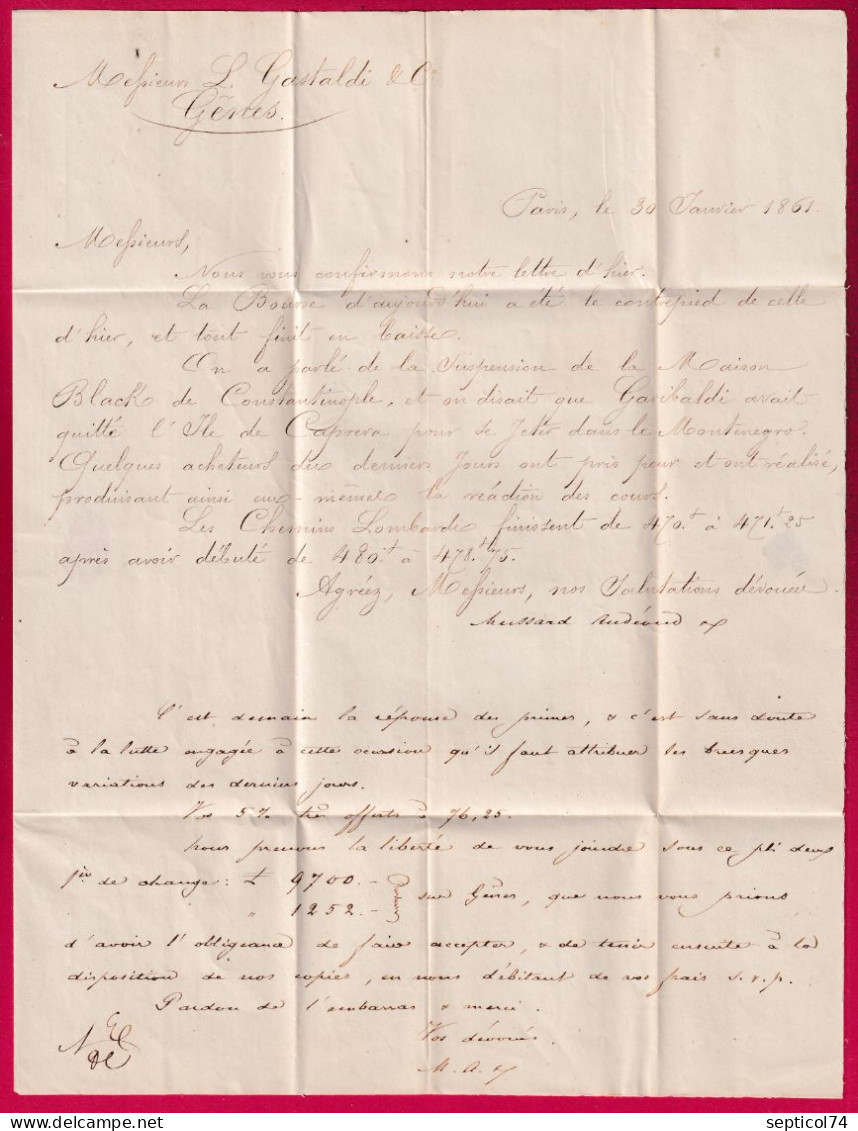 Messieurs L. Gastaldi & Cie
Gênes.
Paris, le 30 Janvier 1861.
Messieurs,
Nous vous confirmons notre lettre d'hier.
La Bourse d'aujourd'hui a été le contrepied de celle
d'hier, et tout finit en baisse.
On a parlé de la Suspension de la Maison
Black de Constantinople, et on disait que Garibaldi avait
quitté l'Ile de Caprera pour se jeter dans le Montenegro.
Quelques acheteurs du derniers Jours ont pris peur et ont réalisé,
produisant ainsi eux-mêmes la réaction des cours.
Les Chemins Lombards finissent de 470.f à 471.f25
après avoir débuté de 480.f à 478.f75.
Agréez, Messieurs, nos Salutations dévouées.
Mussard Audéoud &
C'est demain la réponse des primes, & c'est sans doute
à la lutte engagée à cette occasion qu'il faut attribuer les brusques
variations des derniers jours.
Vos 5% très offerts à 76,25.
Nous prenons la liberté de vous joindre sous ce pli deux
1ères de change: £ 9700.-
" 1252.- sur Gênes, que nous vous prions
d'avoir l'obligeance de faire accepter, & de tenir ensuite à la
disposition de nos copies, en nous débitant de vos frais s.v.p.
Pardon de l'embarras & merci.
Vos dévoués.
M. A. &
SEPTICOL74